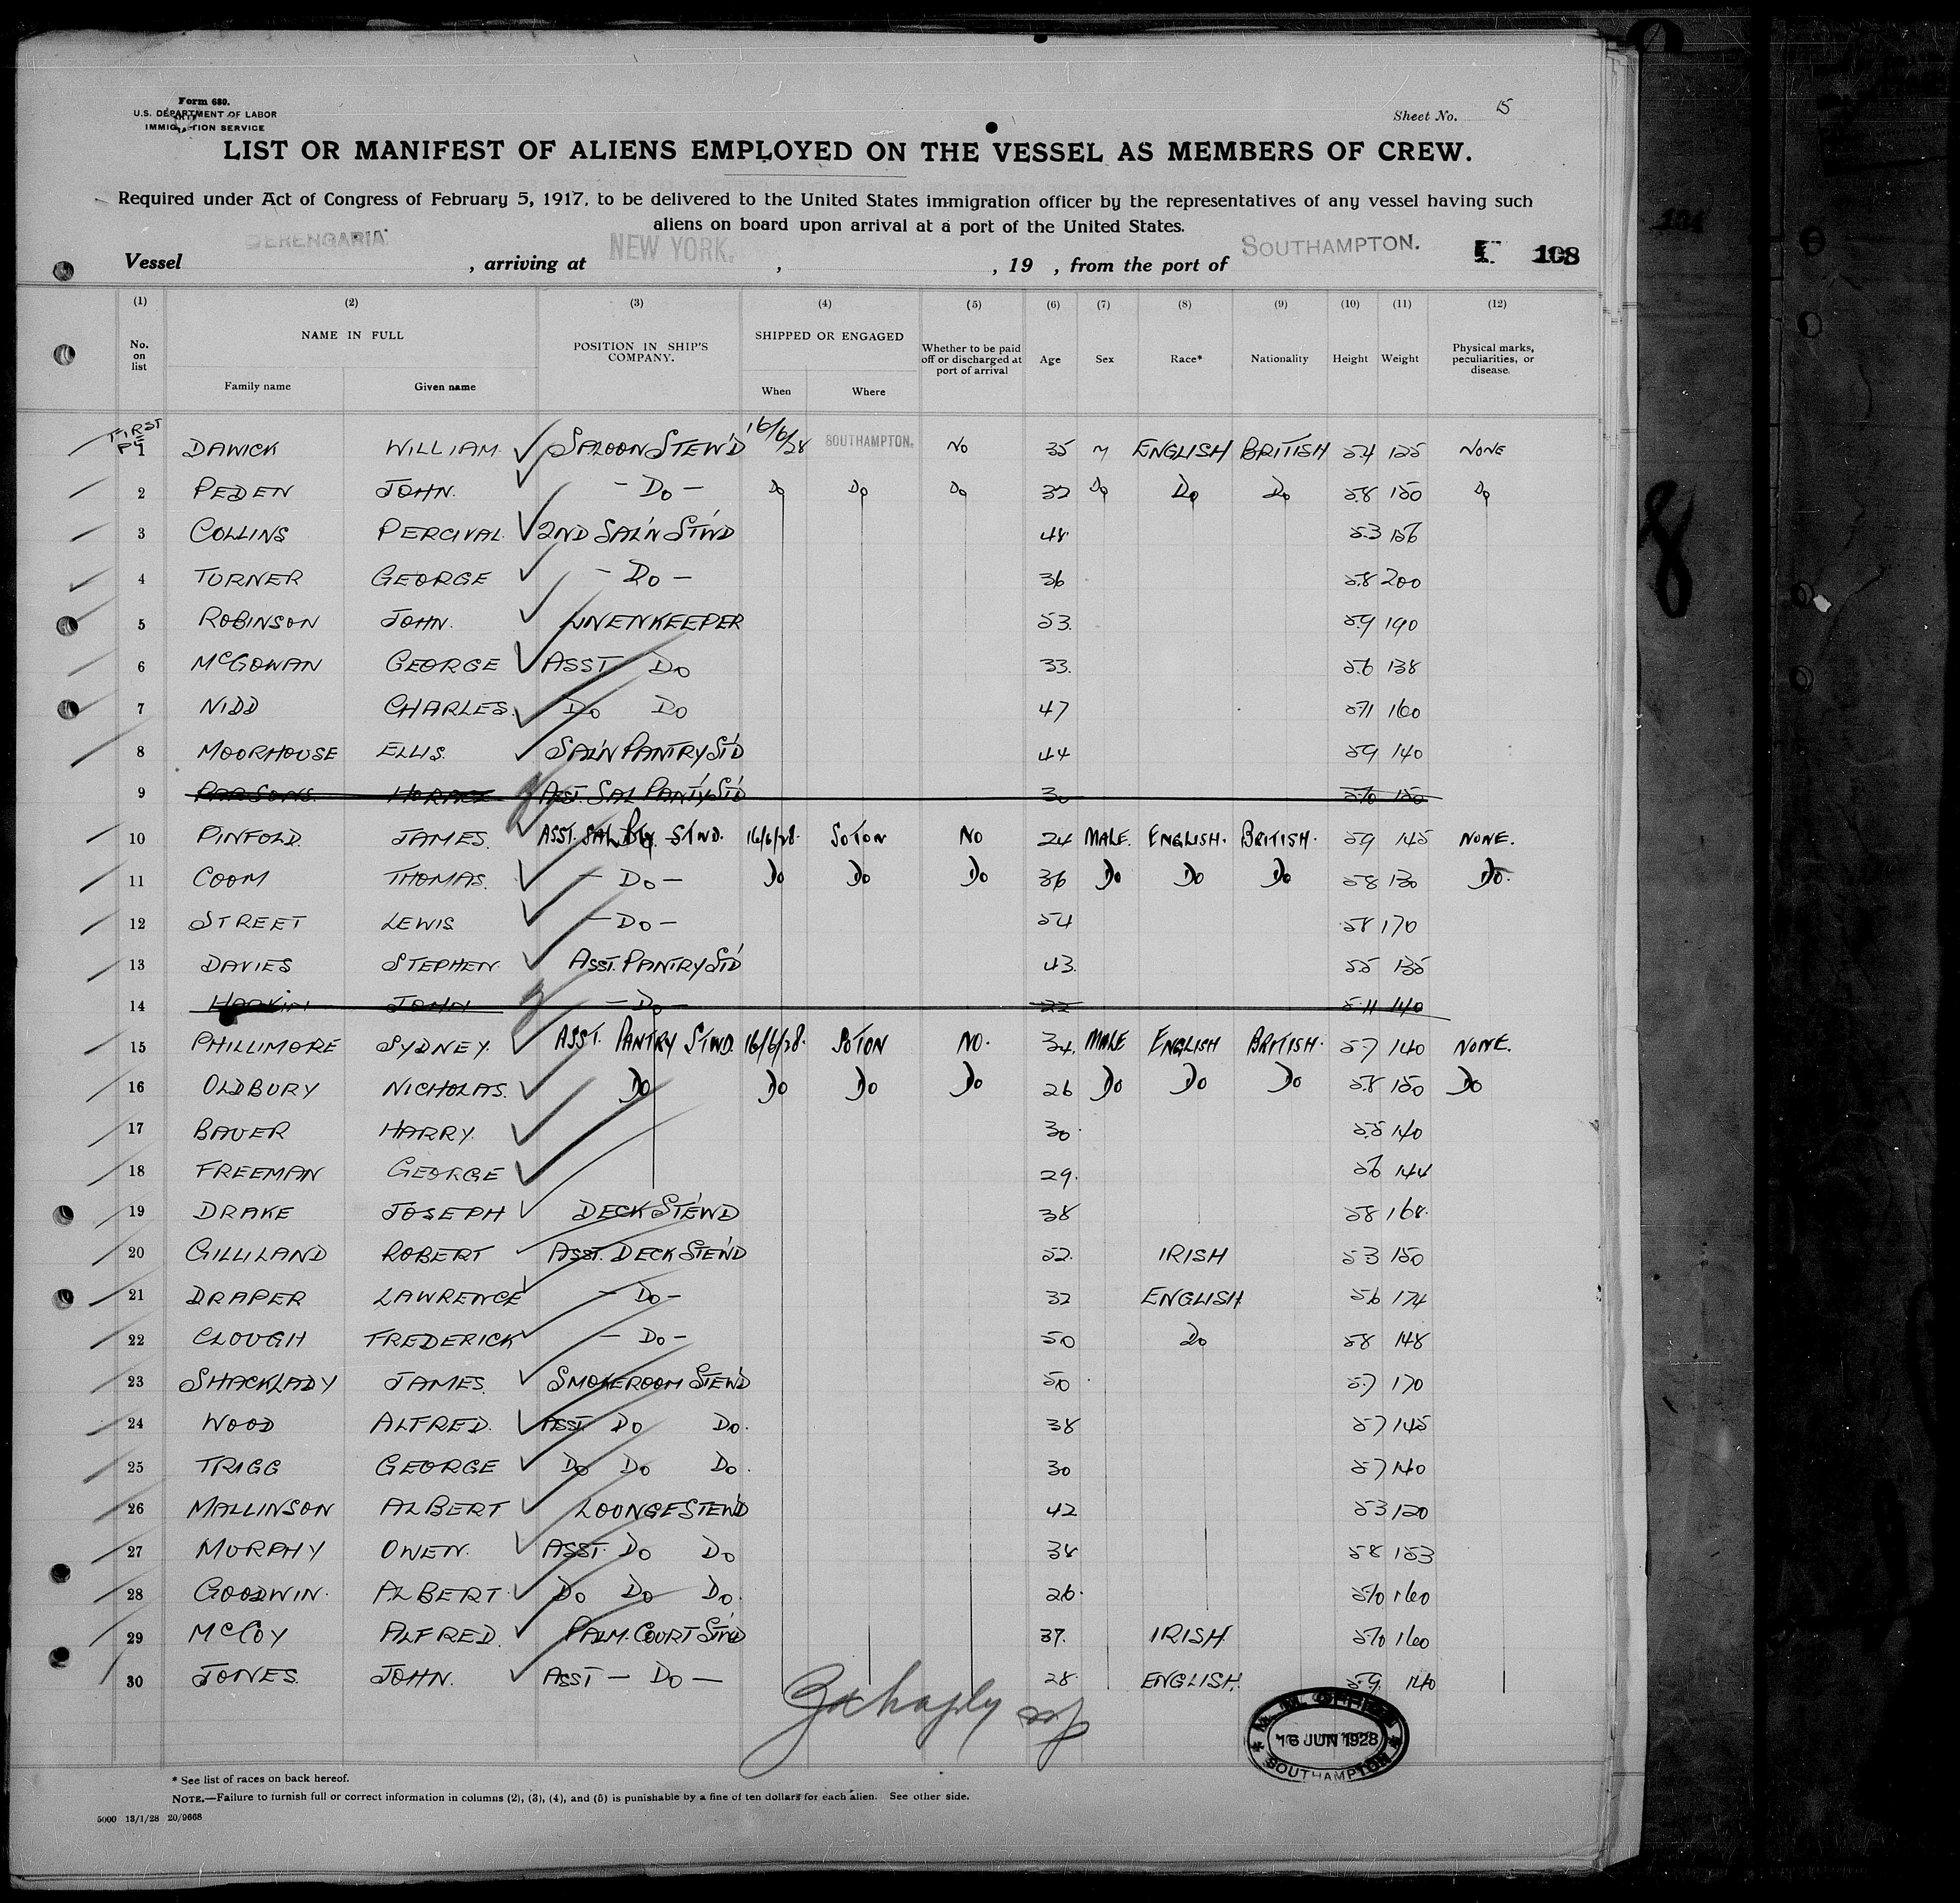 Form 680.
U.S. DEPARTMENT OF LABOR
IMMIGRATION SERVICE
Sheet No. 15
LIST OR MANIFEST OF ALIENS EMPLOYED ON THE VESSEL AS MEMBERS OF CREW.
Required under Act of Congress of February 5, 1917, to be delivered to the United States immigration officer by the representatives of any vessel having such
aliens on board upon arrival at a port of the United States.
Vessel BERENGARIA, arriving at NEW YORK. , , 19 , from the port of SOUTHAMPTON. 108
(1) (2) (3) (4) (5) (6) (7) (8) (9) (10) (11) (12)
No. on list NAME IN FULL Family name Given name POSITION IN SHIP'S COMPANY. SHIPPED OR ENGAGED When Where Whether to be paid off or discharged at port of arrival Age Sex Race* Nationality Height Weight Physical marks, peculiarities, or disease.
FIRST
1 DAWICK WILLIAM. SALOON STEW'D 16/6/28 SOUTHAMPTON. NO 35 M ENGLISH BRITISH 5.4 125 NONE
2 PEDEN JOHN. - DO - DO DO DO 32 DO DO DO 5.8 150 DO
3 COLLINS PERCIVAL. 2ND SAL'N ST'WD 48 5.3 156
4 TURNER GEORGE - DO - 36 5.8 200
5 ROBINSON JOHN. LINENKEEPER 53. 5.9 190
6 McGOWAN GEORGE ASST DO 33. 5.6 138
7 NIDD CHARLES. DO DO 47 5.11 160
8 MOORHOUSE ELLIS. SAL'N PANTRY ST'D 44 5.9 140
9 PARSONS. HORACE ASST. SAL PANT'Y ST'D 30 5.10 150
10 PINFOLD. JAMES. ASST. SAL STWD. 16/6/28. SOTON NO 24 MALE. ENGLISH. BRITISH. 5.9 145 NONE.
11 COOM THOMAS. - DO - DO DO DO 36 DO DO DO 5.8 130 DO.
12 STREET LEWIS - DO - 54 5.8 170
13 DAVIES STEPHEN. ASST. PANTRY ST'D 43. 5.5 135
14 JOHN - DO - 22 5.11 140
15 PHILLIMORE SYDNEY. ASST. PANTRY STWD. 16/6/28. SOTON NO. 34. MALE ENGLISH BRITISH. 5.7 140 NONE.
16 OLDBURY NICHOLAS. DO DO DO DO 26 DO DO DO 5.8 150 DO
17 BAUER HARRY. 30. 5.5 140
18 FREEMAN GEORGE 29. 5.6 144
19 DRAKE JOSEPH DECK STEW'D 38 5.8 168.
20 GILLILAND ROBERT ASST. DECK STEW'D 52. IRISH 5.3 150
21 DRAPER LAWRENCE - DO - 32 ENGLISH 5.6 174
22 CLOUGH FREDERICK - DO - 50 DO 5.8 148
23 SHACKLADY JAMES. SMOKEROOM STEW'D 50 5.7 170
24 WOOD ALFRED. ASST. DO DO. 38 5.7 145
25 TRIGG GEORGE DO DO DO. 30 5.7 140
26 MALLINSON ALBERT LOUNGE STEW'D 42 5.3 120
27 MURPHY OWEN. ASST. DO DO 38 5.8 153
28 GOODWIN. ALBERT. DO DO DO. 26. 5.10 160
29 McCOY ALFRED. PALM. COURT ST'WD 37. IRISH 5.10 160
30 JONES. JOHN. ASST - DO - 28. ENGLISH. 5.9. 140
M. M. OFFICE
16 JUN 1928
SOUTHAMPTON
* See list of races on back hereof.
NOTE.—Failure to furnish full or correct information in columns (2), (3), (4), and (5) is punishable by a fine of ten dollars for each alien. See other side.
5000 13/1/28 20/9668
8